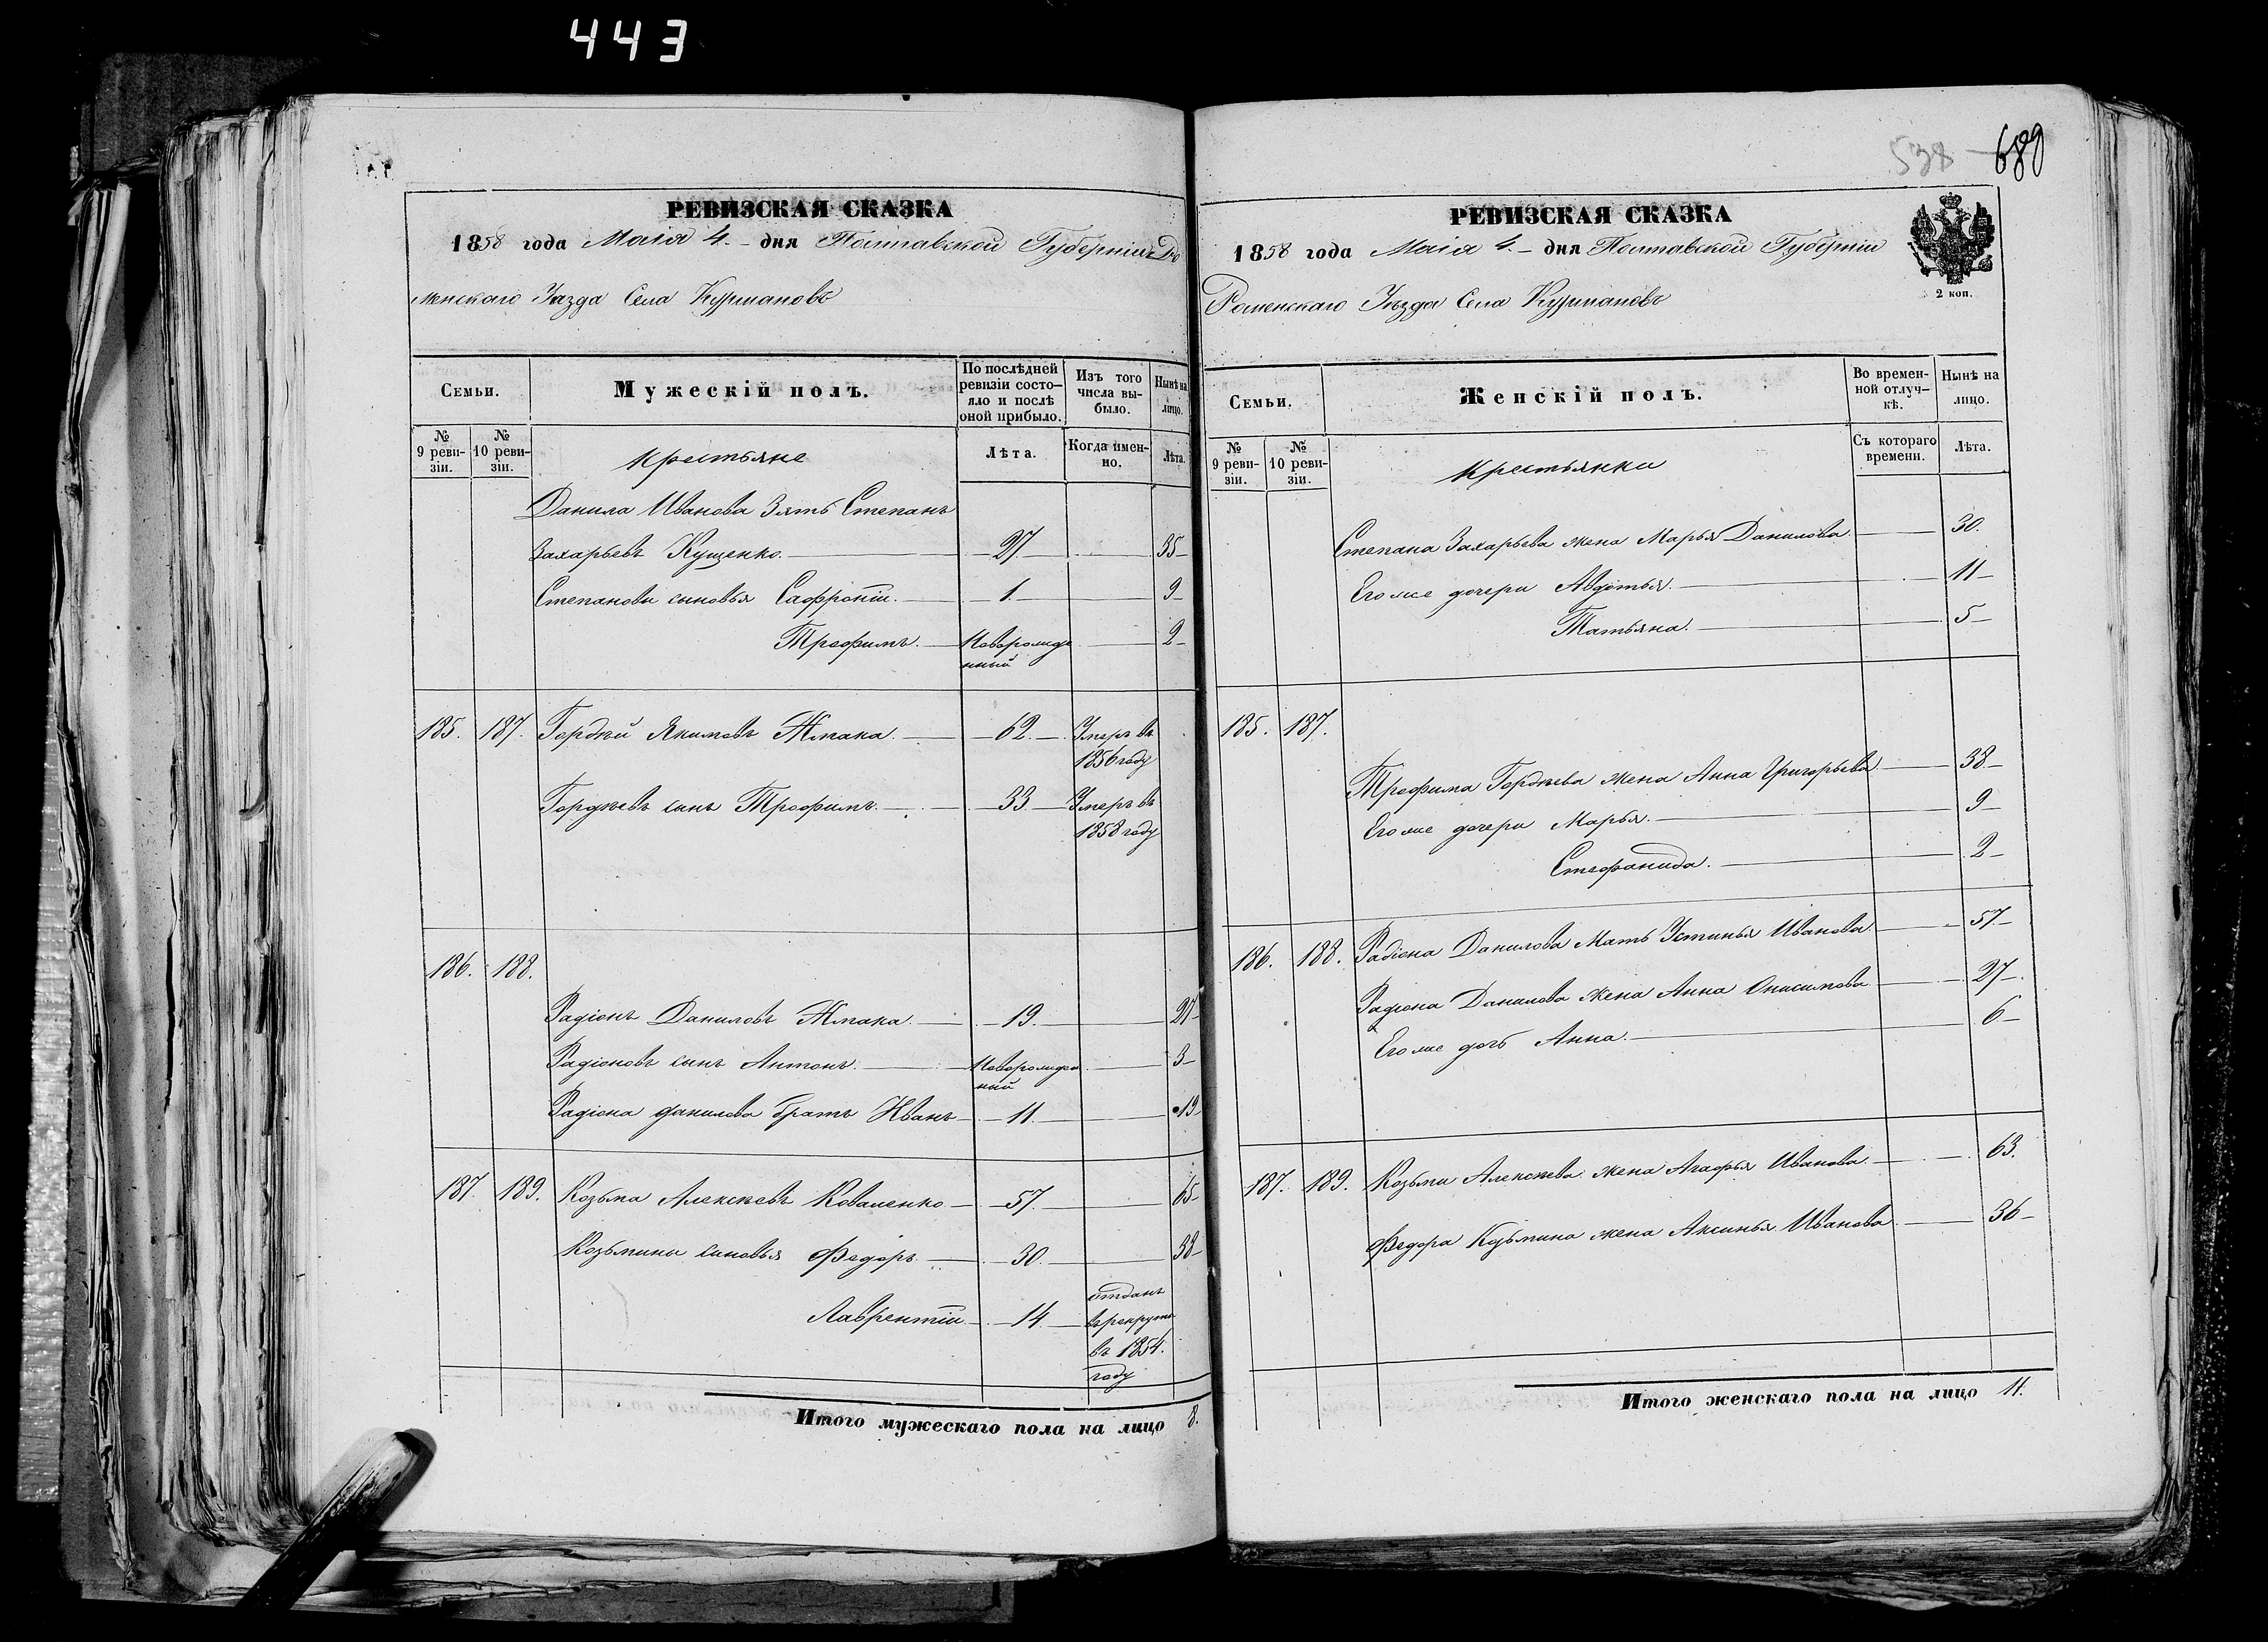 443
РЕВИЗСКАЯ СКАЗКА
1858 года Маія 4. дня Полтавской Губерніи Ро
менскаго Уѣзда Села Курмановъ
Семьи.
Мужескій полъ.
По послѣдней ревизіи состояло и послѣ оной прибыло.
Изъ того числа выбыло.
Нынѣ на лицо.
№ 9 ревизіи.
№ 10 ревизіи.
Крестьяне
Лѣта.
Когда именно.
Лѣта.
Данила Иванова Зять Степанъ
Захарьевъ Кущенко. 27 35
Степановы сыновья Сафроній. 1. 9
Трофимъ. Новорожде 2
нный
185. 187. Гордѣй Якимовъ Жмака. 62. Умеръ въ
1856 году
Гордѣевъ сынъ Трофимъ. 33 Умеръ въ
1858 году
186. 188.
Радіонъ Даниловъ Жмака. 19. 27
Радіоновъ сынъ Антонъ. Новорожден 3
ный
Радіона Данилова братъ Иванъ 11. 19
187. 189. Козьма Алексѣевъ Коваленко 57. 65
Козьмины сыновья Федоръ. 30. 38
отданъ
Лаврентій. 14 въ рекруты
въ 1854.
году
Итого мужескаго пола на лицо 8.
538 689
РЕВИЗСКАЯ СКАЗКА
1858 года Маія 4. дня Полтавской Губерніи
2 коп.
Роменскаго Уѣзда Села Курмановъ
Семьи.
Женскій полъ.
Во временной отлучкѣ.
Нынѣ на лицо.
№ 9 ревизіи.
№ 10 ревизіи.
Крестьянки
Съ котораго времени.
Лѣта.
Степана Захарьева жена Марья Данилова. 30.
Его же дочери Авдотья. 11
Татьяна. 5
185. 187.
Трофима Гордѣева жена Анна Григорьева 38
Его же дочери Марья. 9
Стефанида. 2
186. 188. Радіона Данилова Мать Устинья Иванова. 57
Радіона Данилова жена Анна Онисимова 27
Его же дочь Анна. 6
187. 189. Козьмы Алексѣева жена Агафья Иванова. 63.
Федора Козьмина жена Аксинья Иванова 36
Итого женскаго пола на лицо 11.